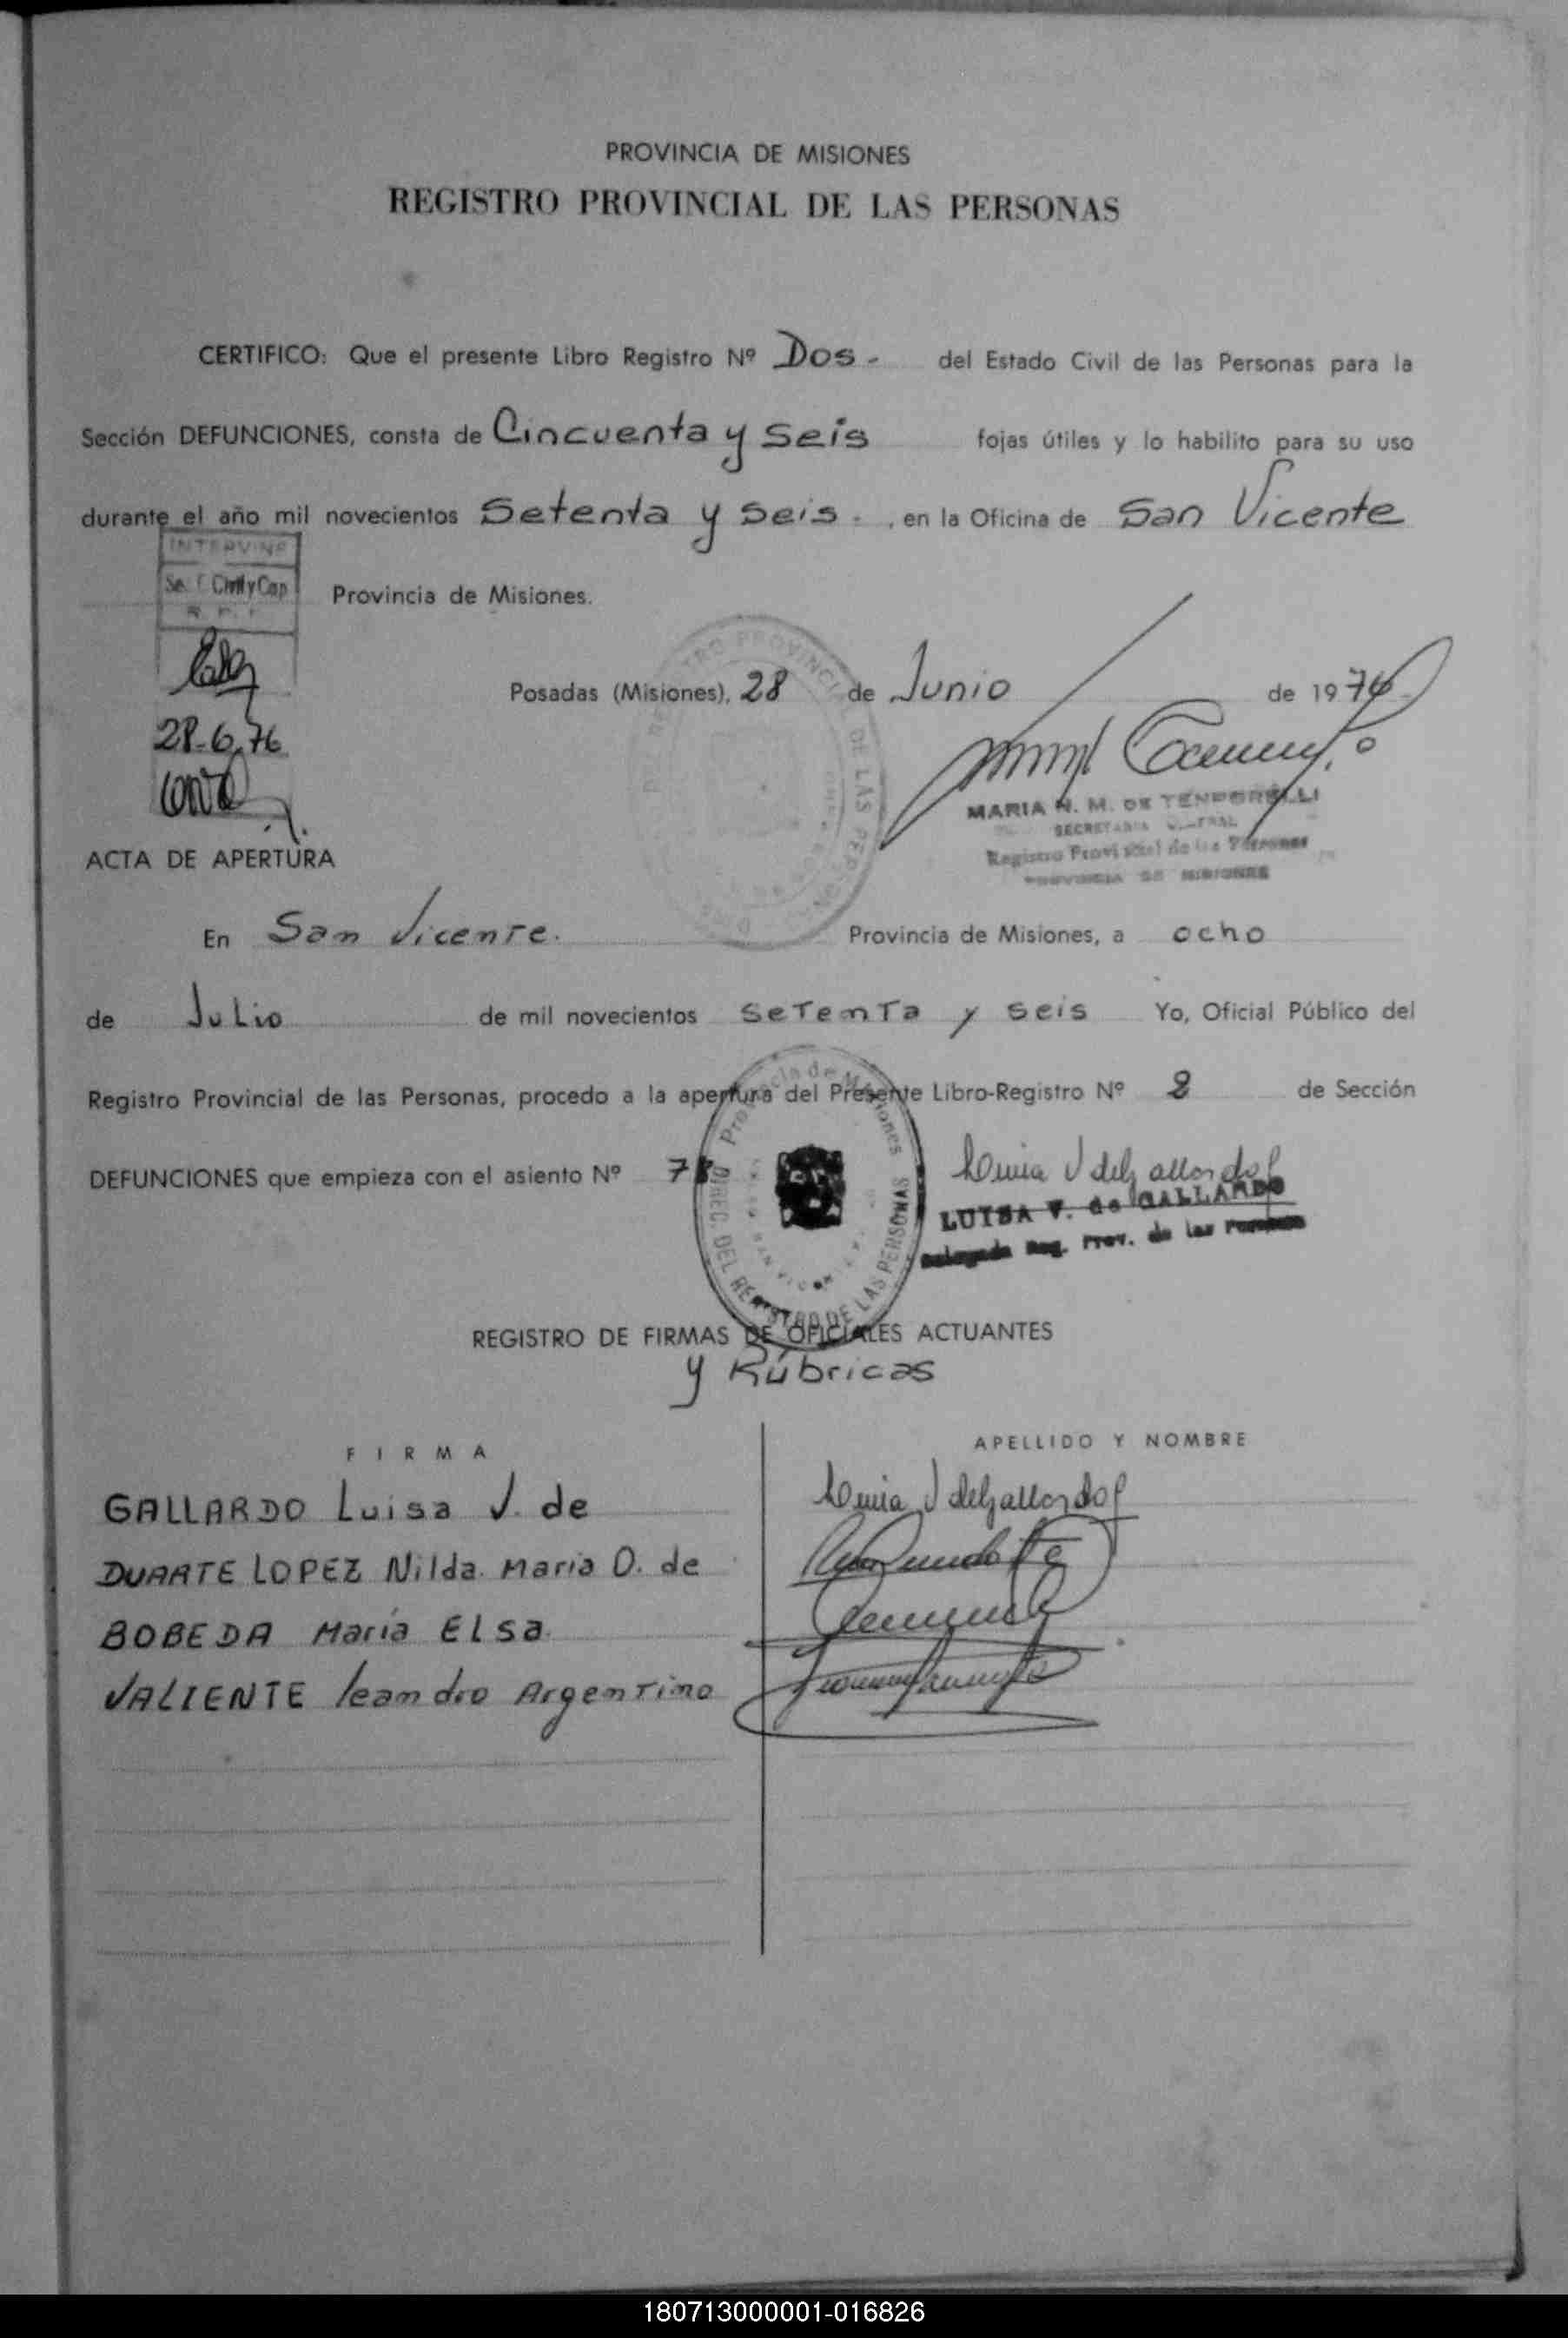 PROVINCIA DE MISIONES
REGISTRO PROVINCIAL DE LAS PERSONAS
CERTIFICO: Que el presente Libro Registro Nº Dos - del Estado Civil de las Personas para la
Sección DEFUNCIONES, consta de Cincuenta y seis fojas útiles y lo habilito para su uso
durante el año mil novecientos Setenta y seis - , en la Oficina de San Vicente
INTERVINE
Civil y Cap
Provincia de Misiones.
Posadas (Misiones), 28 de Junio de 1976
28-6-76
MARIA N. M. DE
SECRETARIA
Registro Provincial de las Personas
PROVINCIA DE MISIONES
ACTA DE APERTURA
En San Vicente. Provincia de Misiones, a ocho
de Julio de mil novecientos setenta y seis Yo, Oficial Público del
Registro Provincial de las Personas, procedo a la apertura del Presente Libro-Registro Nº 2 de Sección
DEFUNCIONES que empieza con el asiento Nº
Provincia de Misiones
DIREC. DEL REGISTRO DE LAS PERSONAS
LUISA V. de GALLARDO
Delegada Reg. Prov. de las Personas
REGISTRO DE FIRMAS DE OFICIALES ACTUANTES
y Rúbricas
FIRMA APELLIDO Y NOMBRE
GALLARDO Luisa V. de
DUARTE LOPEZ Nilda Maria O. de
BOBEDA María Elsa
VALIENTE leandro Argentino
180713000001-016826